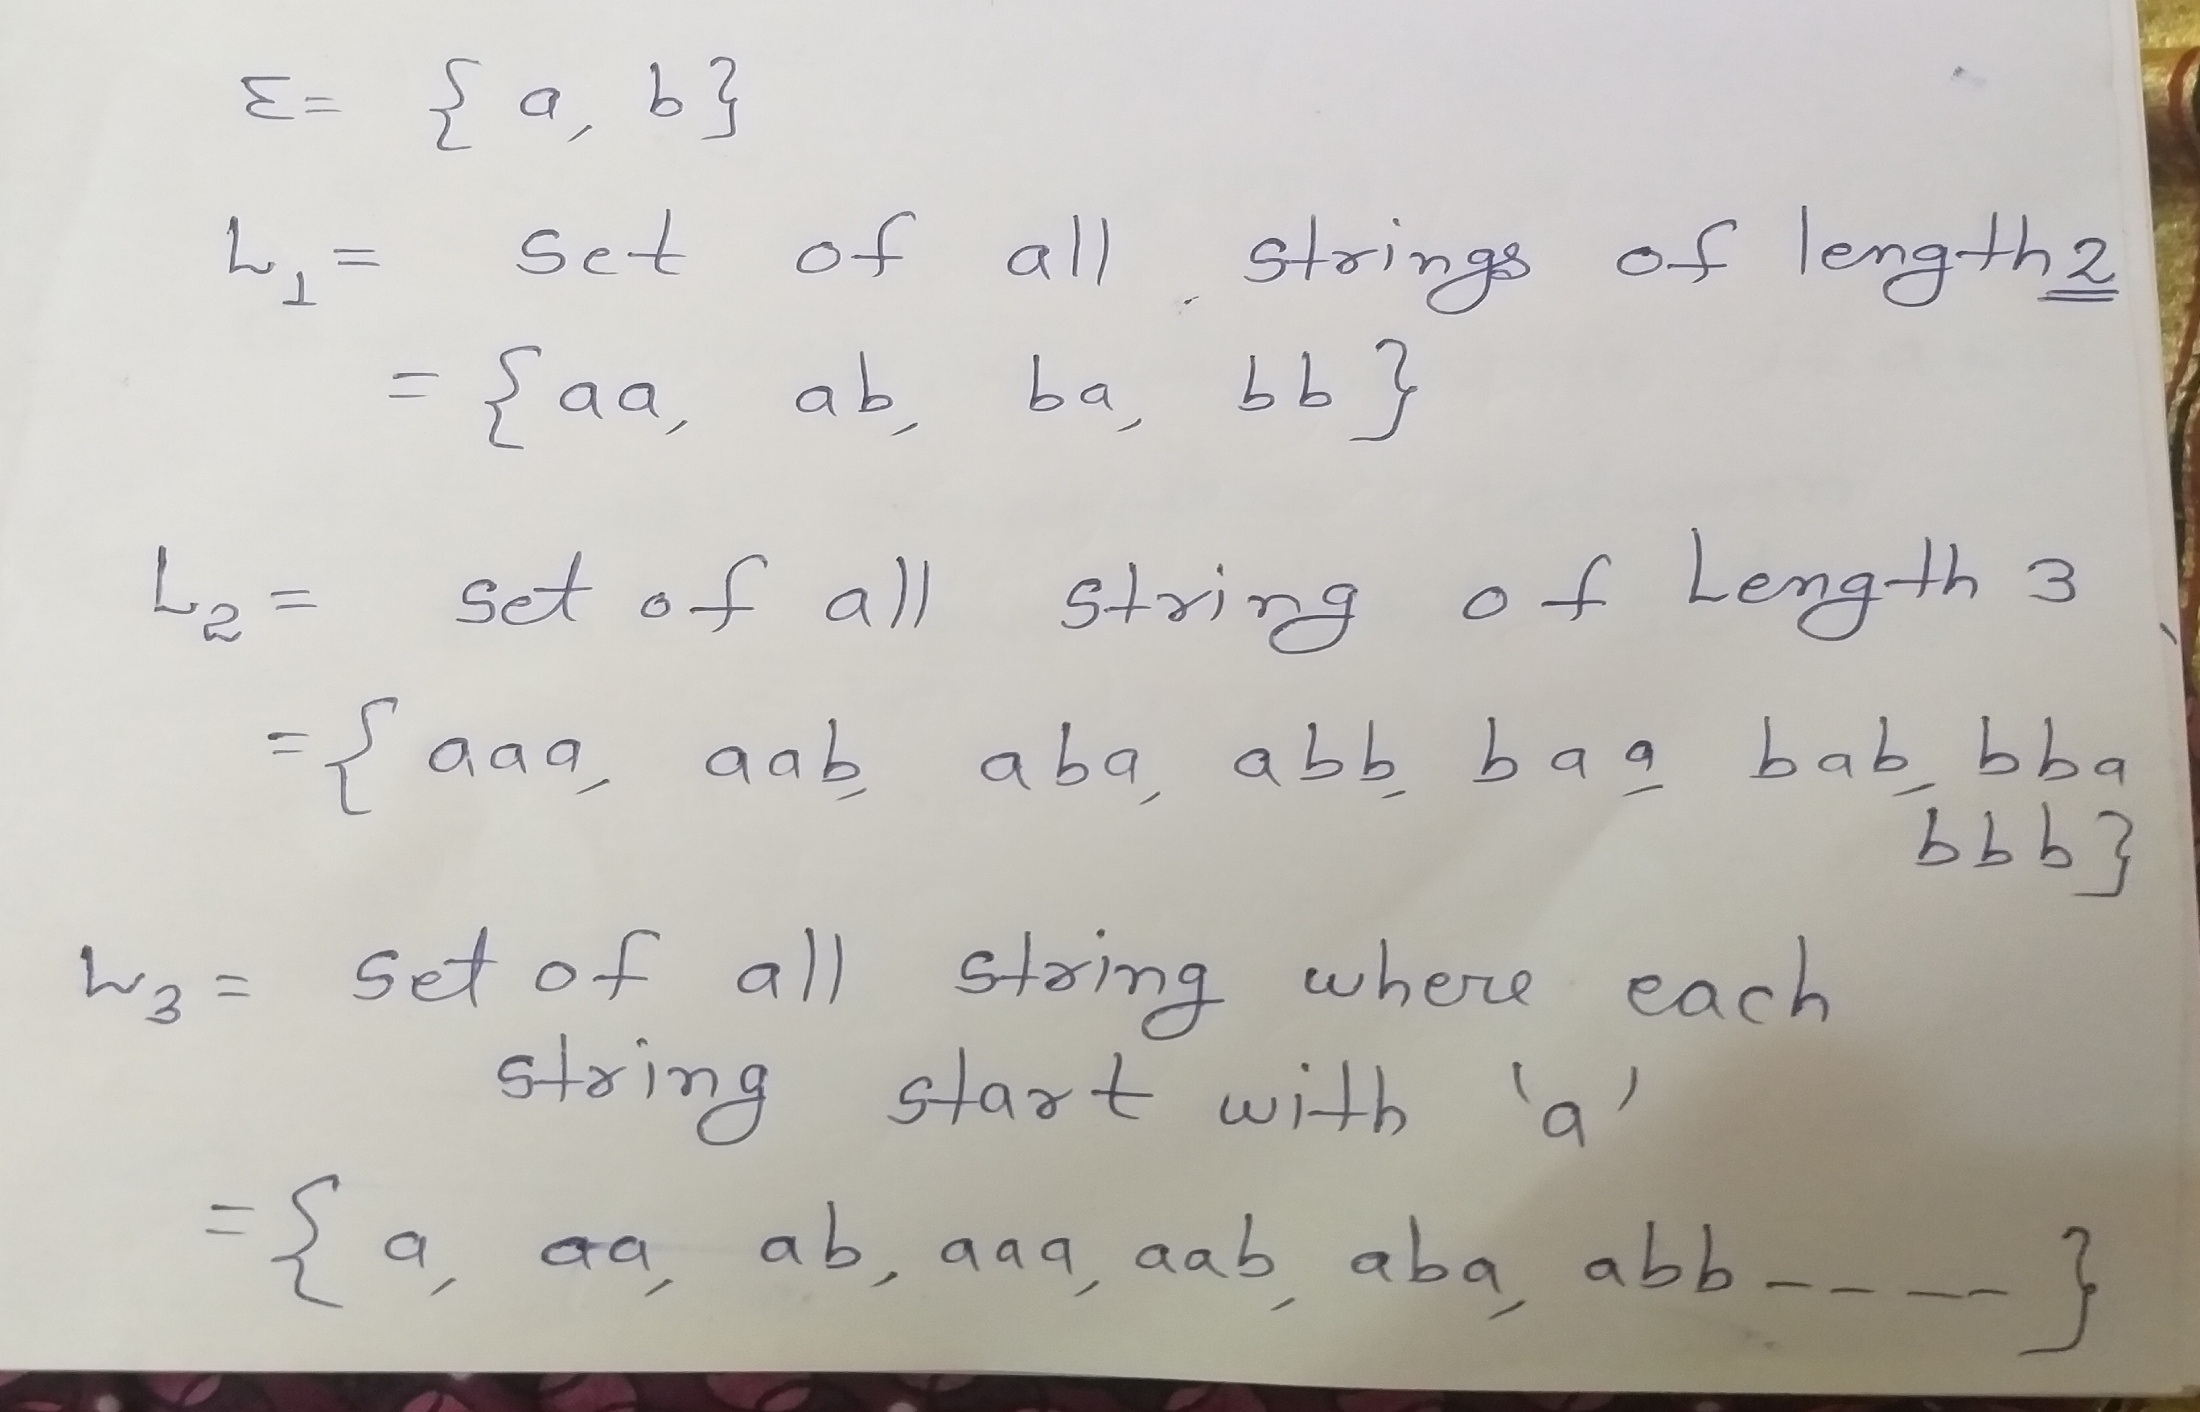 Σ = { a, b}
L₁ = set of all strings of length 2
= { aa, ab, ba, bb }
L₂ = set of all string of Length 3
= { aaa, aab, aba, abb, baa, bab, bba
bbb}
L₃ = set of all string where each
string start with 'a'
= { a, aa, ab, aaa, aab, aba, abb ----- }